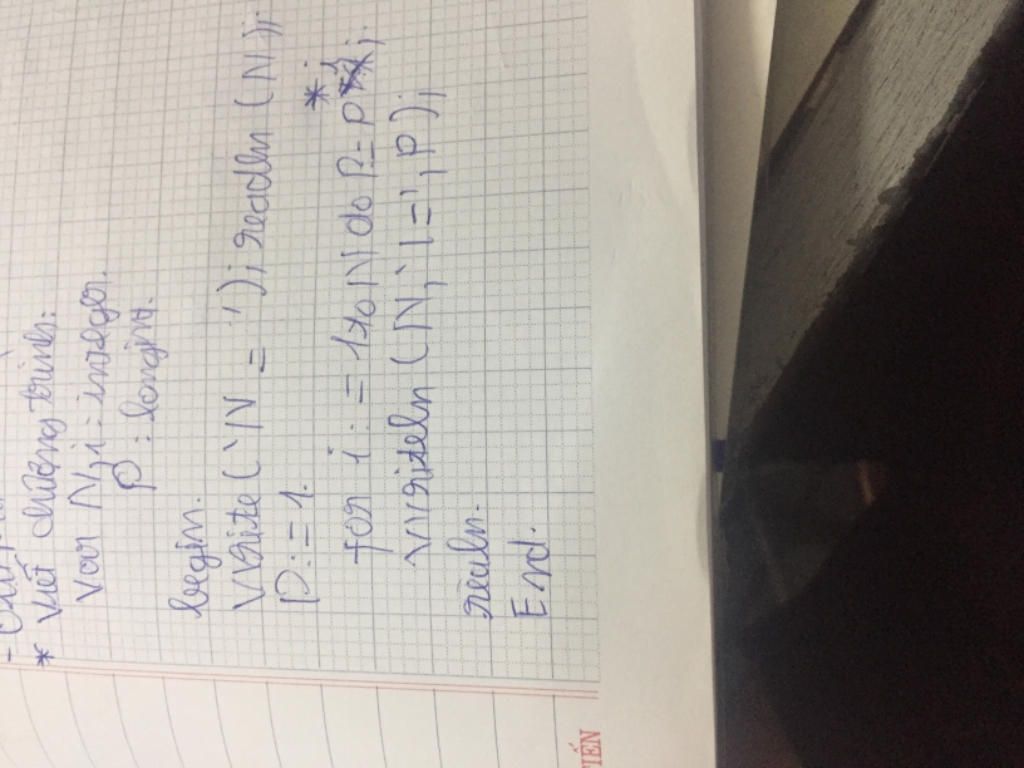 * Viết chương trình:
Var N, i : integer.
P : longint.
begin.
Write ('N = '); readln (N);
P := 1.
for i := 1 to N do P:= P * i;
writeln (N, '! =', P);
readln.
End.
TIẾN